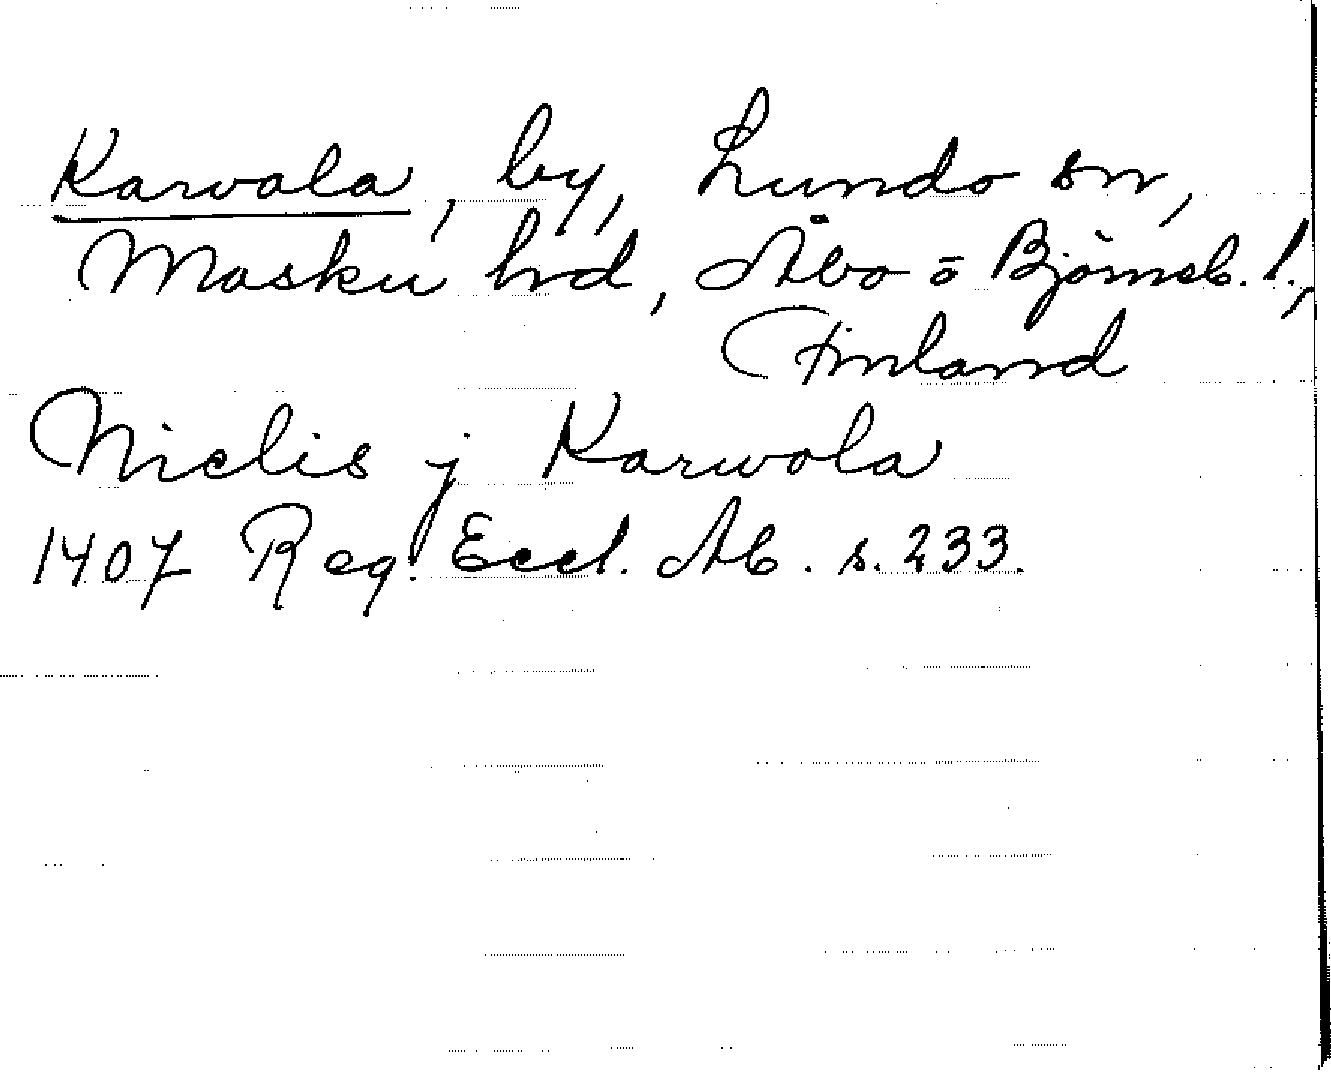 Karvola, by, Lundo sn,
Masku hd, Åbo o Björneb. l.,
Finland
Niclis j Karwola
1407 Reg. Eccl. Ab. s. 233.